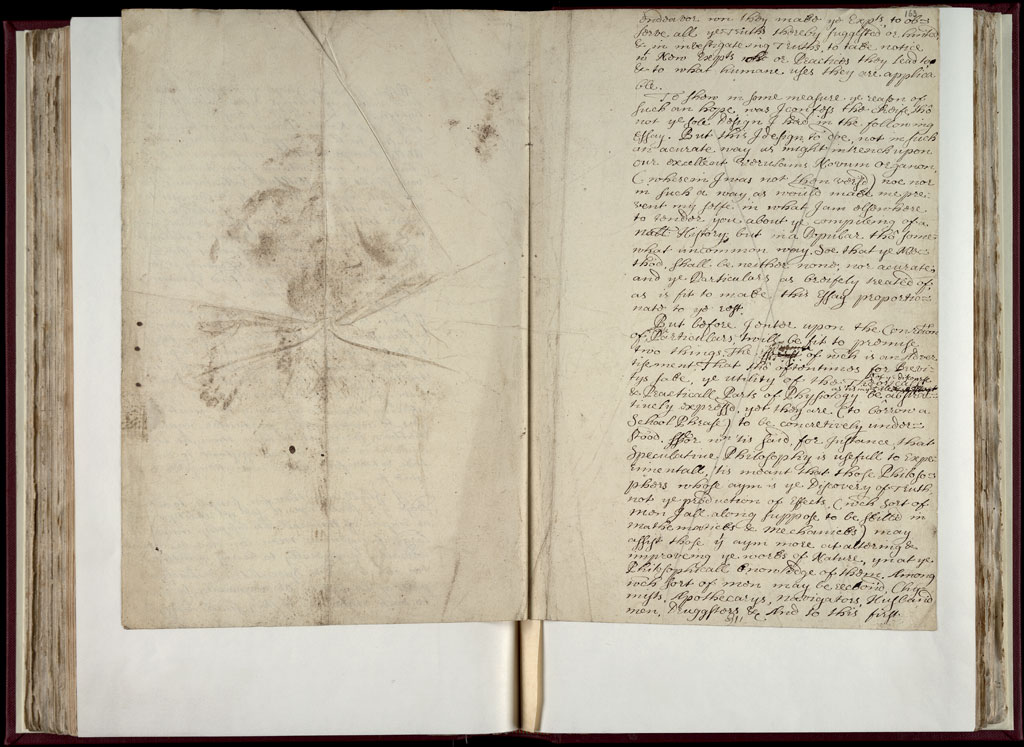 168
endeavor wn they make ye Expts, to ob-
serve all ye Truths thereby suggested or hinted
& in investigateing Truths, to take notice
wt New Expts or Practices they lead to,
& to what humane uses they are applica
ble.
To show in some measure ye reason of
such an hope, was I confess the cheife tho
not ye sole Design I had in the following
Essay. But this I design to doe, not in such
an acurate way as might intrench upon
our excellent Verulams Novum organon,
(wherein I was not then vers'd) noe nor
in such a way as would make me pre-
vent my selfe in what I am elsewhere
to tender you about ye compileing of a
natll History, but in a Popular tho some-
what uncommon way, Soe that ye Me-
thod shall be neither none, nor acurate,
and ye Particulars as breifely treated of,
as is fit to make this Essay proportio-
nate to ye rest.
But before I enter upon the
of Particulars twill be fit to promise
two things. The of wch is an Adver-
tisement That tho oftentimes for Brevi-
tys sake, ye utility of the Theoricall
& Practicall Parts of Physiology be abstrac-
tively express'd, yet they are (to borrow a
School Phrase) to be concretively under-
stood. ffor wn 'tis said, for Instance, that
Speculative Philosophy is usefull to Expe-
rimentall, 'tis meant that those Philoso-
phers whose aym is ye Discovery of Truth,
not ye production of Effects, (wch sort of
men I all along suppose to be skilld in
mathematicks & Mechanicks) may
assist those yt aym more at altering &
improveing ye works of Nature, yn at ye
Philosophicall knowledge of them. Among
wch sort of men may be reckond, Chy-
mists, Apothecarys, Navigators, Husband
men, Druggsters &c And to this first